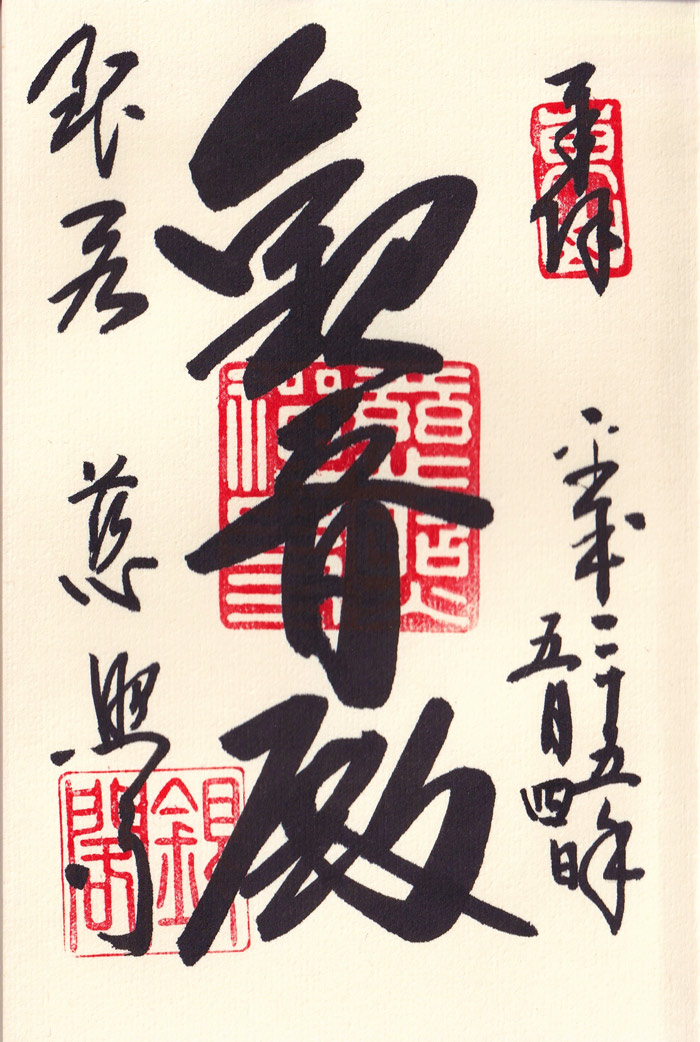 奉拝
東山
平成二十五年
五月四日
観音殿
銀閣 慈照寺
銀閣